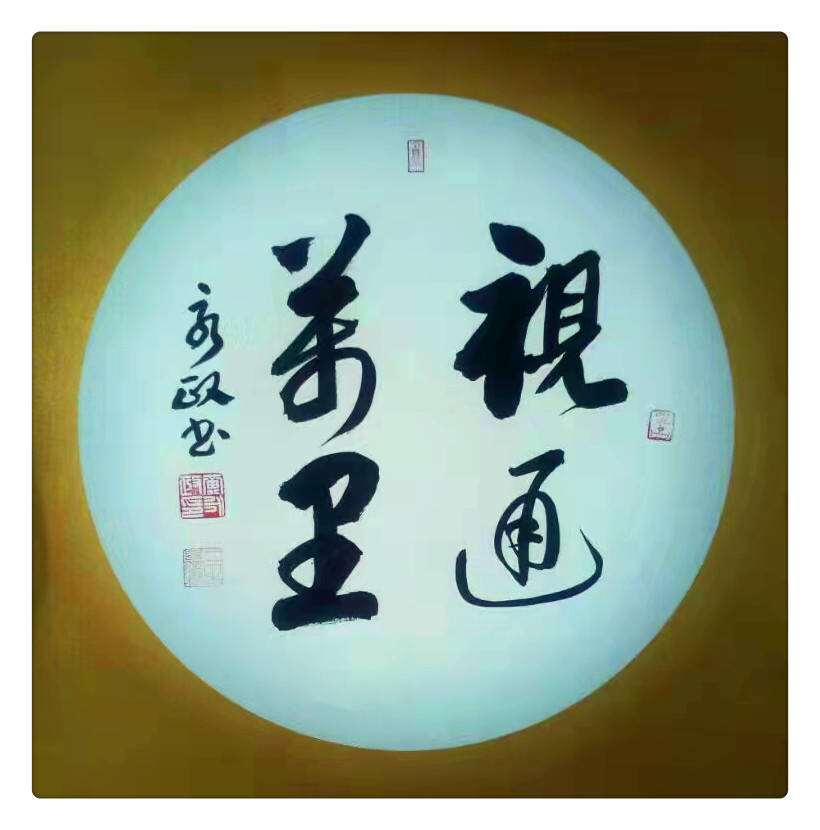 視通
萬里
永政书